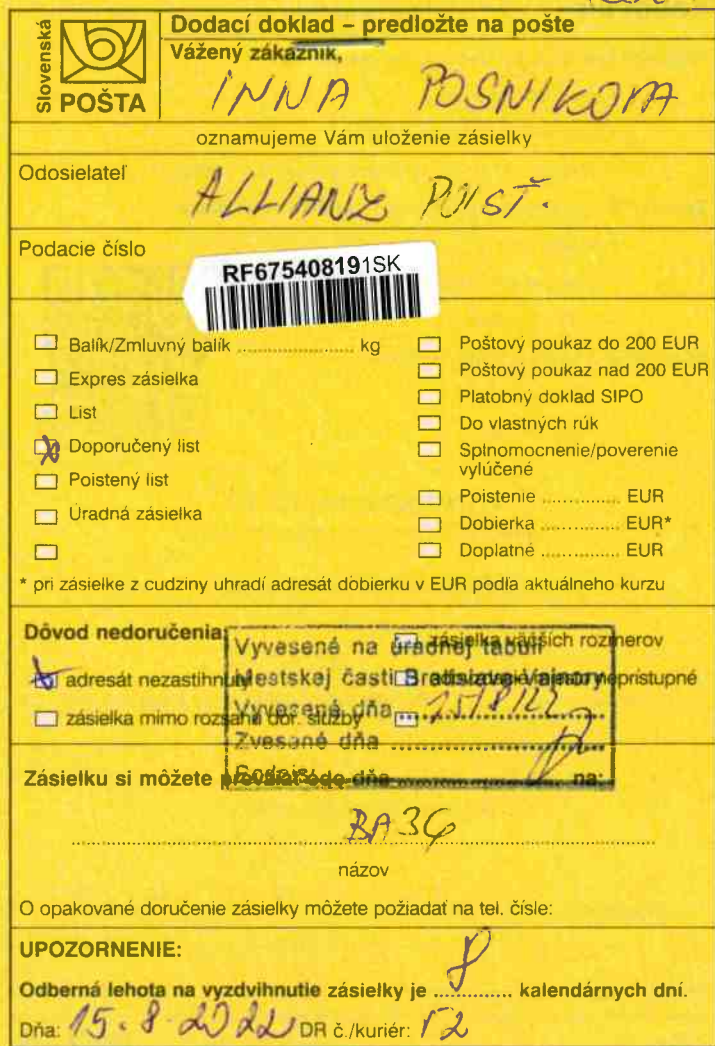 Slovenská
POŠTA
Dodací doklad – predložte na pošte
Vážený zákazník,
INNA POSNIKOVA
oznamujeme Vám uloženie zásielky
Odosielateľ
ALLIANZ POISŤ.
Podacie číslo
RF675408191SK
Balík/Zmluvný balík .................... kg
Expres zásielka
List
Doporučený list
Poistený list
Úradná zásielka
Poštový poukaz do 200 EUR
Poštový poukaz nad 200 EUR
Platobný doklad SIPO
Do vlastných rúk
Splnomocnenie/poverenie
vylúčené
Poistenie ............. EUR
Dobierka ............. EUR*
Doplatné ............. EUR
* pri zásielke z cudziny uhradí adresát dobierku v EUR podľa aktuálneho kurzu
Dôvod nedoručenia:
zásielka väčších rozmerov
adresát nezastihnutý
neprístupné
zásielka mimo rozsahu dor. služby
Vyvesené na úradnej tabuli
Mestskej časti Bratislava-Vajnory
Vyvesené dňa 15/8/22
Zvesené dňa
Zásielku si môžete prevziať odo dňa na:
BA36
názov
O opakované doručenie zásielky môžete požiadať na tel. čísle:
UPOZORNENIE:
Odberná lehota na vyzdvihnutie zásielky je 8 kalendárnych dní.
Dňa: 15.8.2022 DR č./kuriér: 52